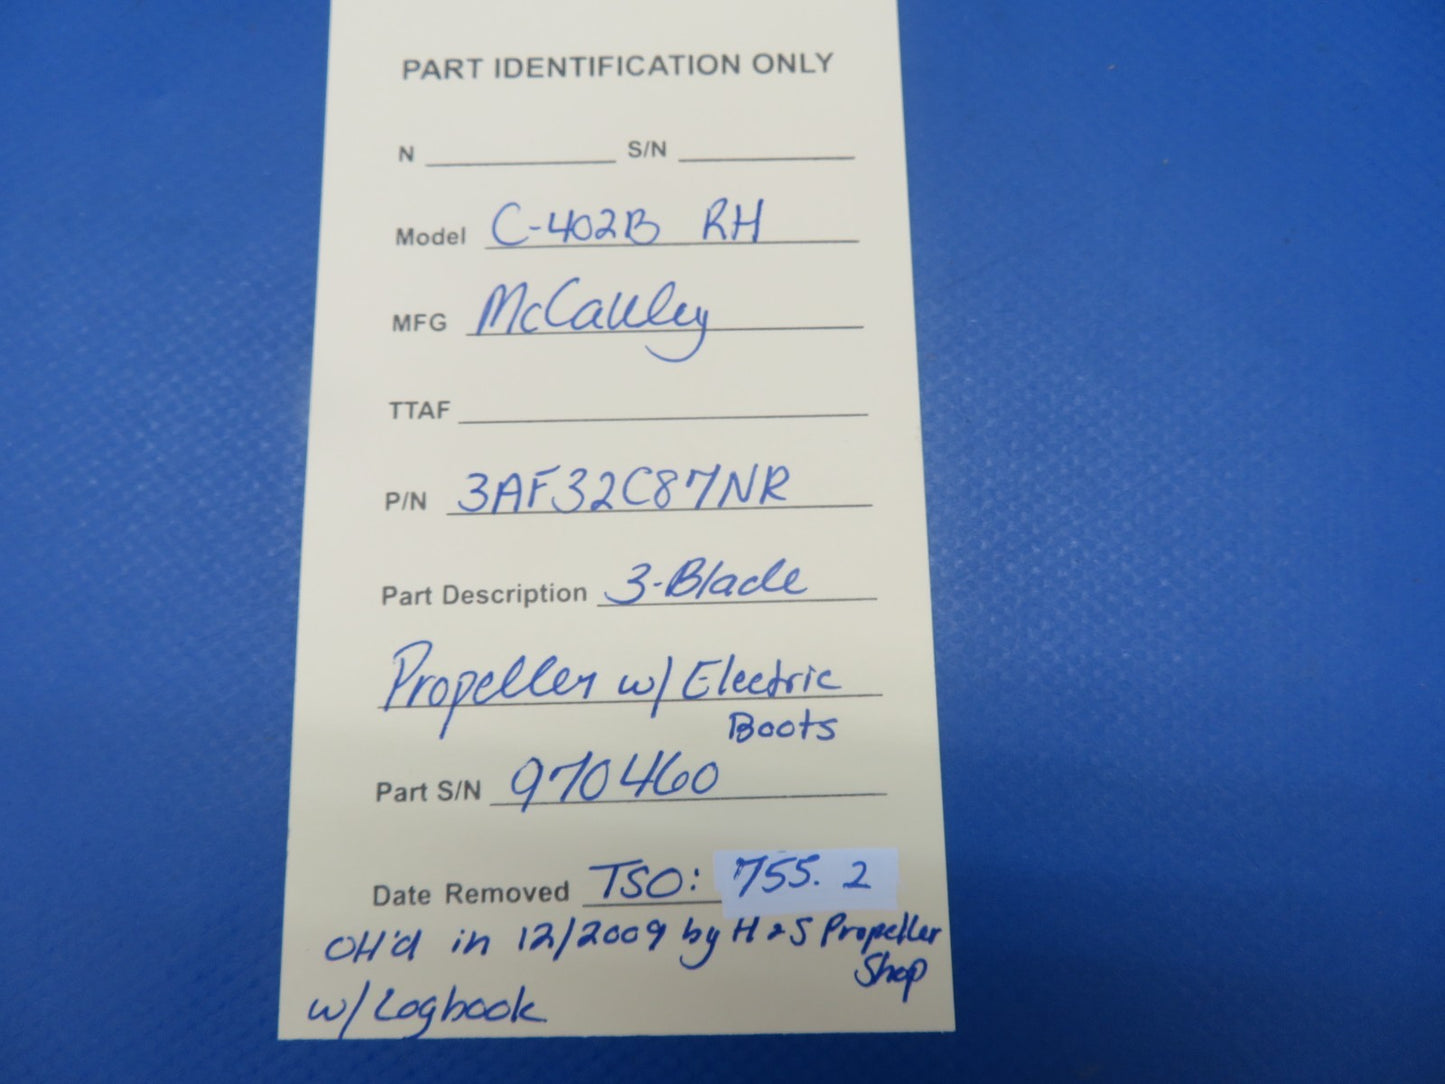 PART IDENTIFICATION ONLY
N ____________ S/N ____________
Model C-402B RH
MFG McCauley
TTAF ____________
P/N 3AF32C87NR
Part Description 3-Blade
Propeller w/ Electric
Boots
Part S/N 970460
Date Removed TSO: 755.2
OH'd in 12/2009 by H & S Propeller
Shop
w/ Logbook